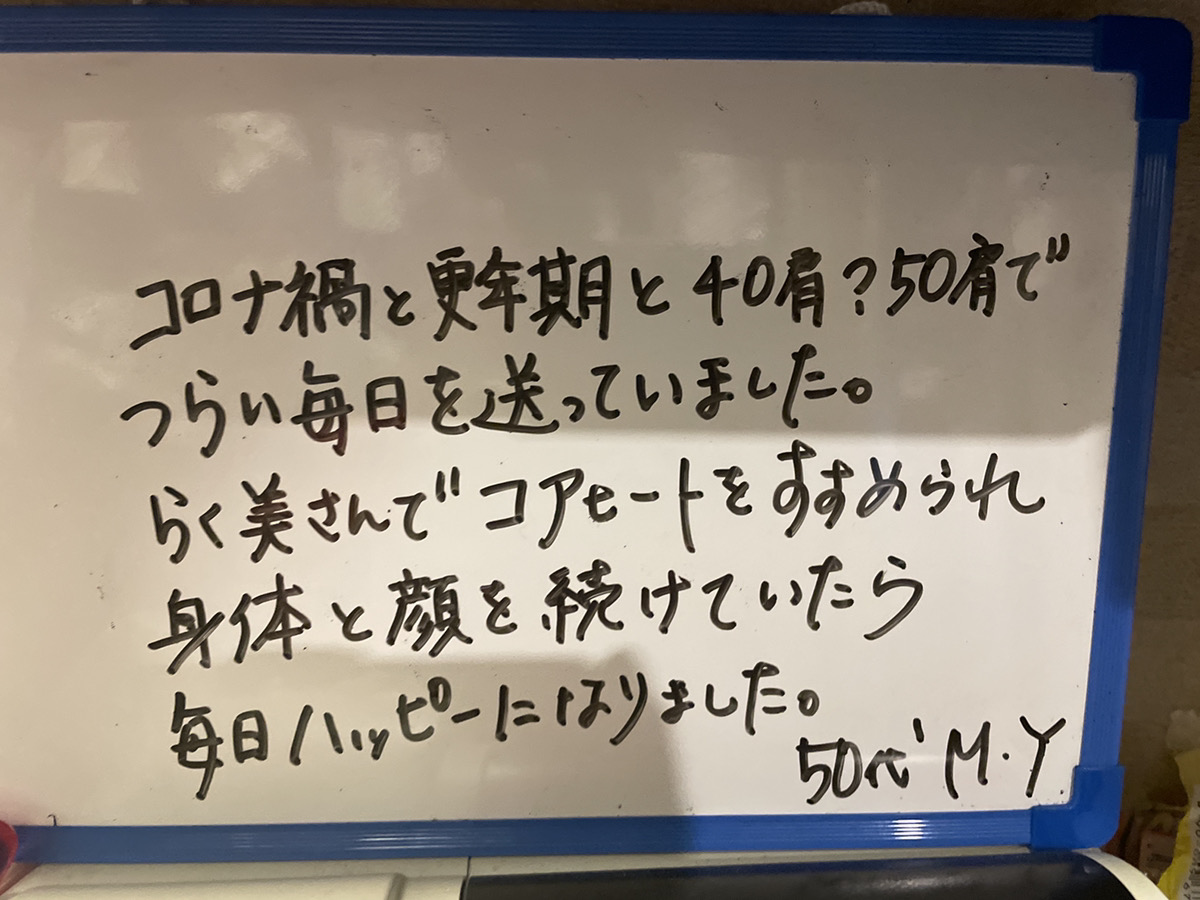 コロナ禍と更年期と40肩？50肩で
つらい毎日を送っていました。
らく美さんでコアヒートをすすめられ
身体と顔を続けていたら
毎日ハッピーになりました。
50代 M.Y